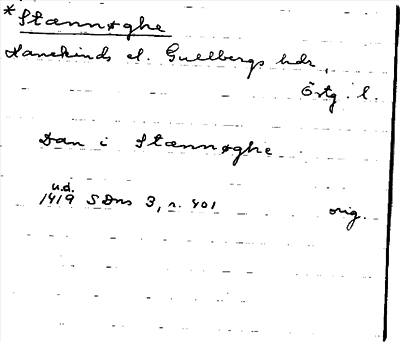 *Stænnøghe
Hanekinds el. Gullbergs hdr,
Östg. l.
Dan i Stænnøghe
u.d.
1419 SDns 3, n. 401 orig.